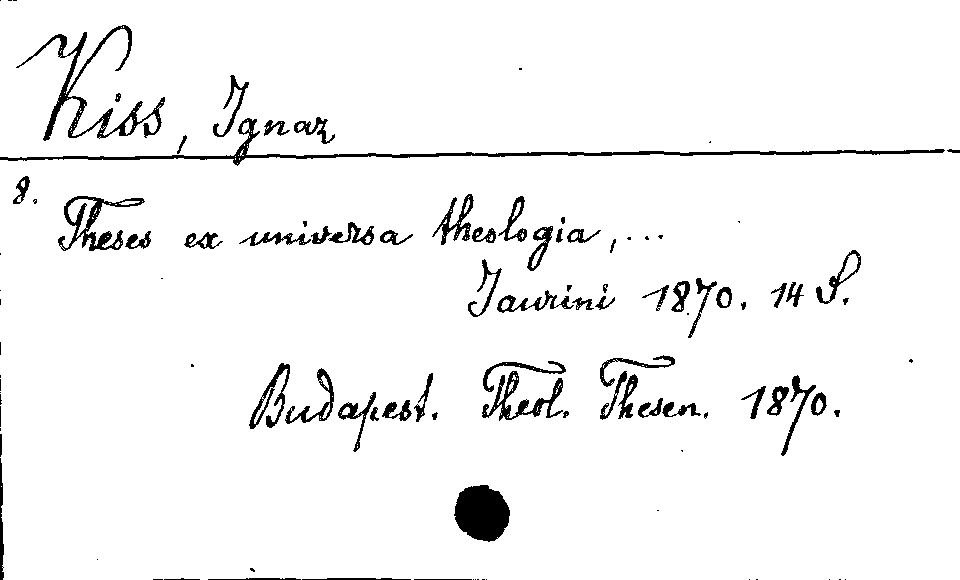 Kiss, Ignaz
8.
Theses ex universa theologia, ...
Jaurini 1870. 14 S.
Budapest. Theol. Thesen. 1870.